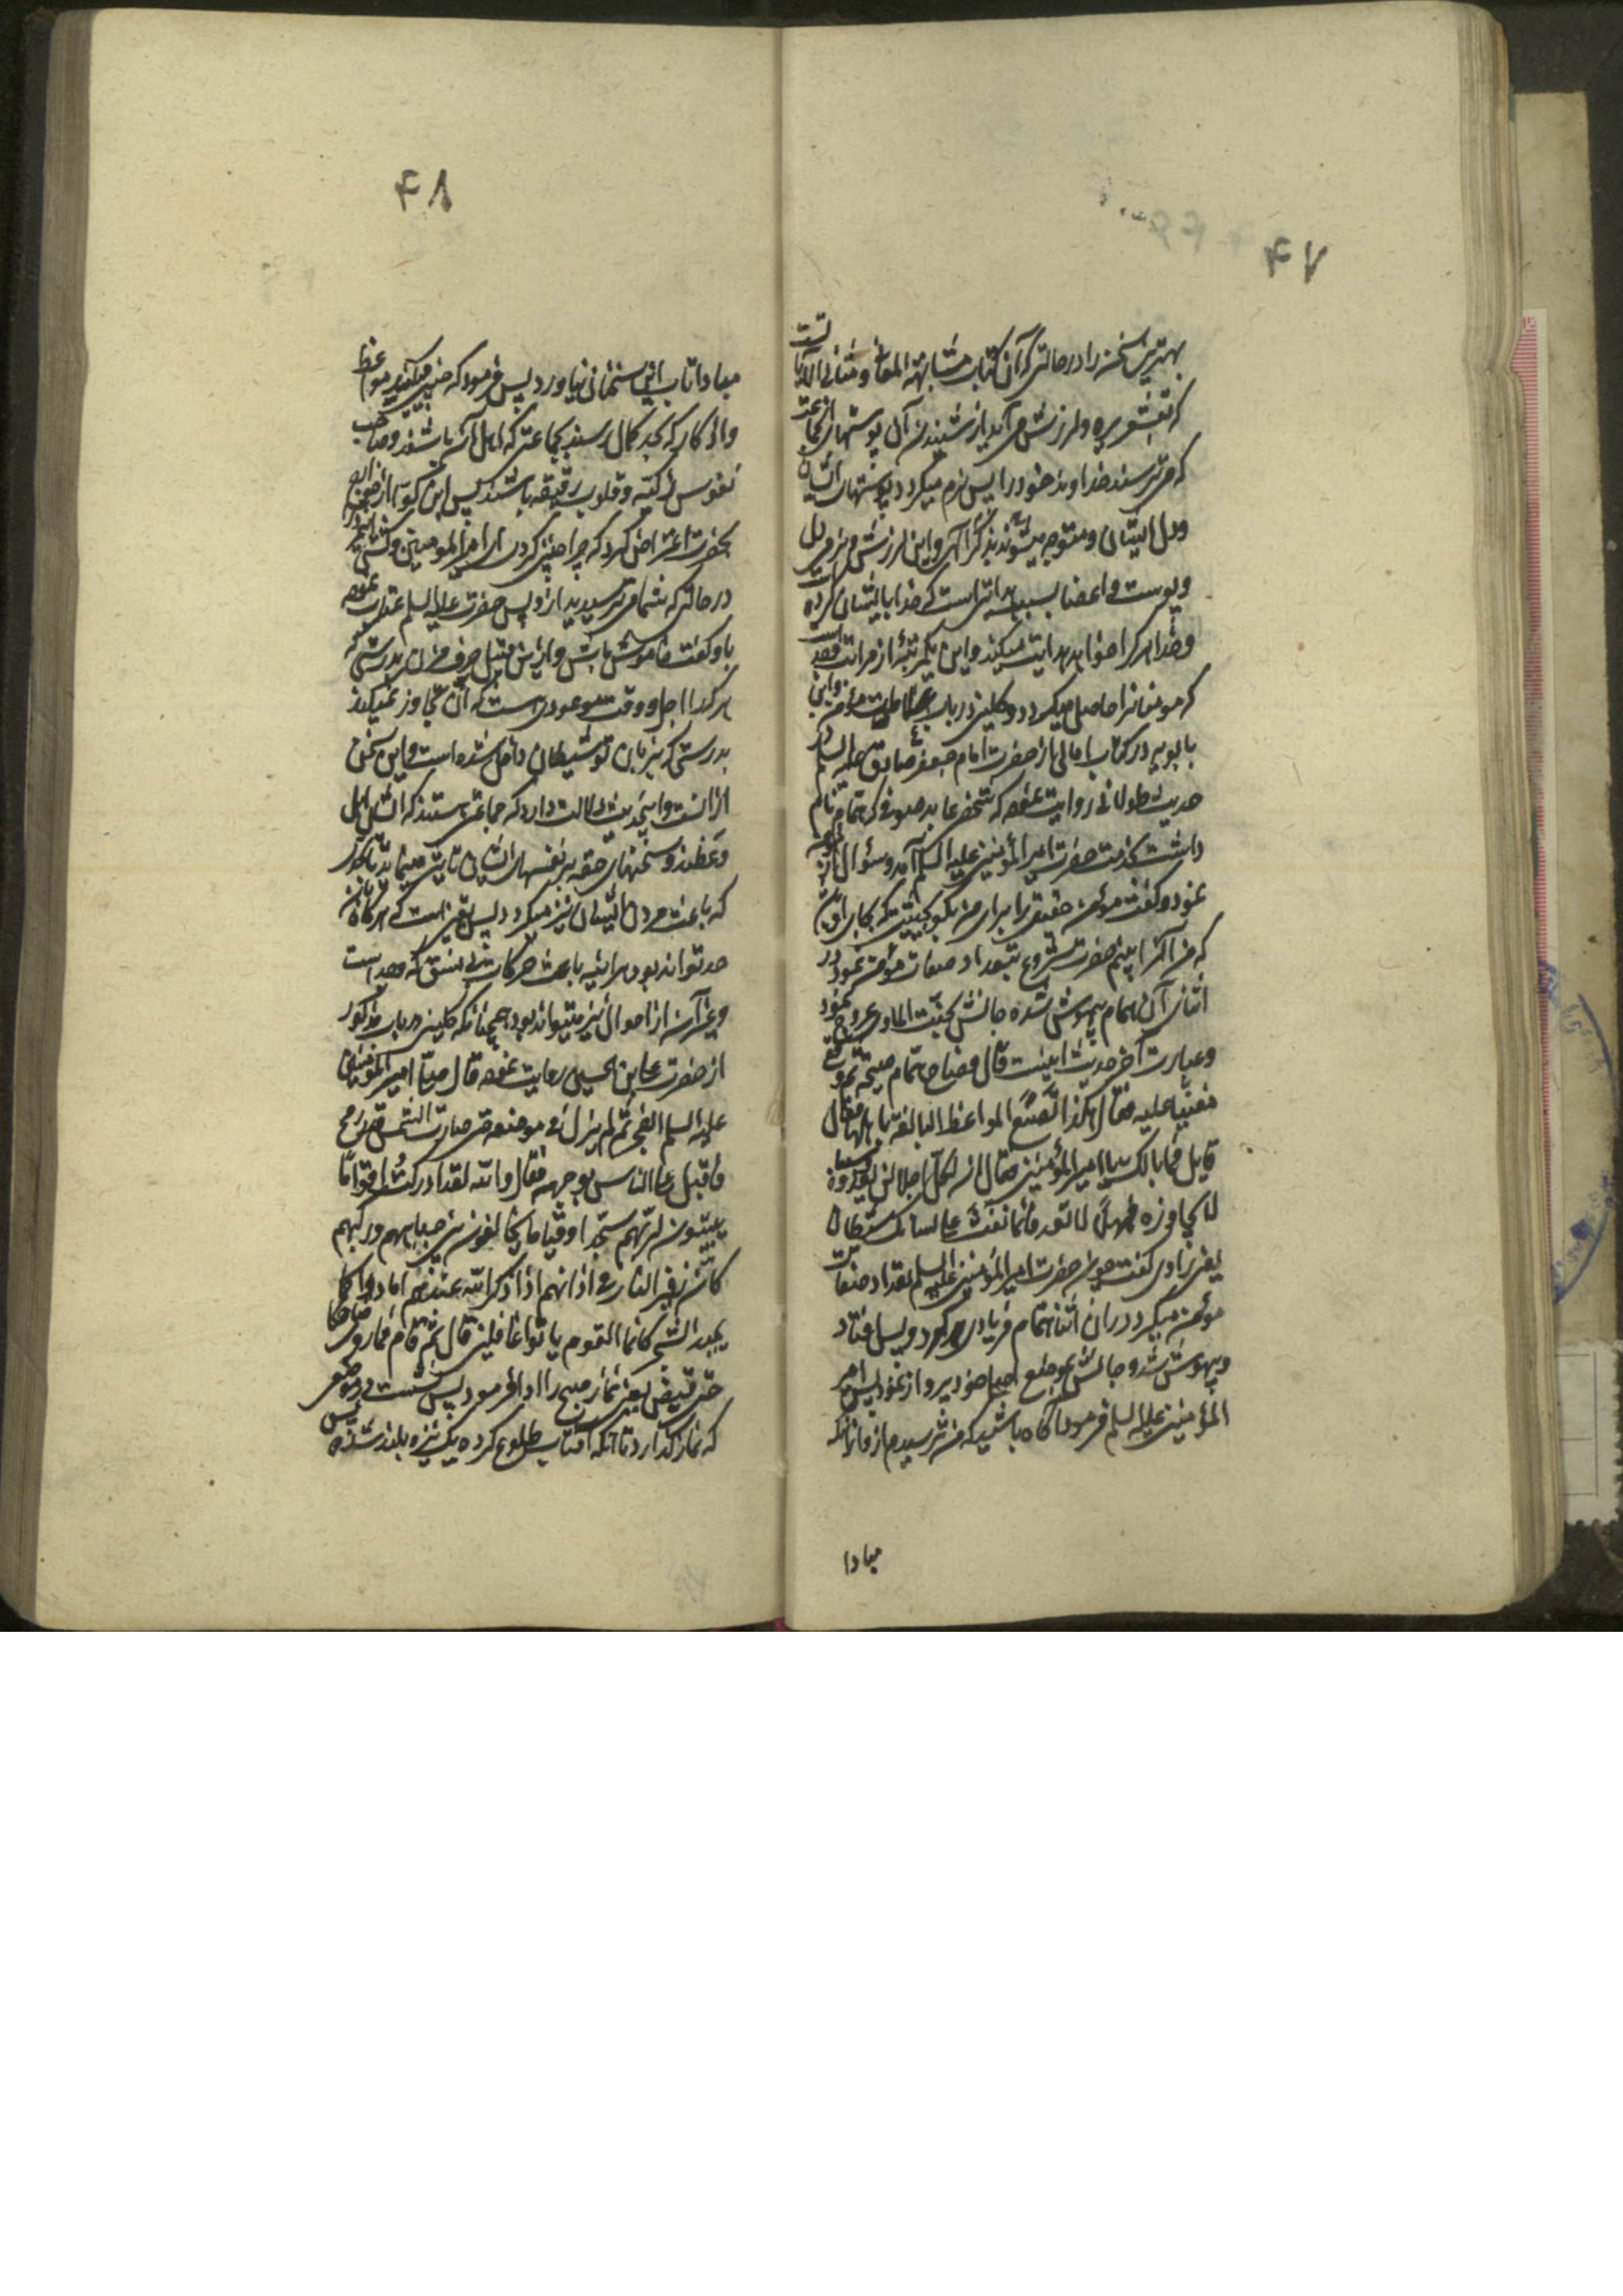 ۴۷
بهترین سخن را در حالتی که آن کتاب متشابهة المعانی و مثانی التلاوت است
که قشعریره و لرزش می آید از شنیدن آن پوستهای جماعت
که می ترسند خداوند خود را پس نرم میگردد پوستهای ایشان
و دل ایشان و متوجه میشوند بذکر الهی و این لرزش و نرمی دل
و پوست و اعضا بسبب هدایتی است که خدا بایشان کرده
و خدا هر که را خواهد هدایت میکند و این یکمرتبه از مراتب وجد است
که مومنانرا حاصل میگردد و کلینی در باب علامات مؤمن و ابن
بابویه در کتاب امالی از حضرت امام جعفر صادق علیه السلام
حدیث طولانی روایت نموده که شخص عابد صوفی که همام نام
داشت بخدمت حضرت امیر المؤمنین علیه السلام آمد و سؤال
نمود و گفت مؤمن حقیقی را برای من بگو بحیثیتی که بجای آن
که من آنرا ببینم حضرت شروع بتعداد صفات مؤمن نمود در
اثنای آن همام بیهوش شده جانش بجنت الماوی عروج نمود
و عبارت آخر حدیث اینست قال فصاح همام صیحة ثم وقع
مغشیا علیه فقال هکذا تصنع المواعظ البالغة باهلها فقال
قایل فما بالک یا امیر المؤمنین فقال ان لکل اجلا لن یعدوه و سببا
لا یجاوزه فمهلا لا تعد فانما نفث علی لسانک شیطان
یعنی راوی گفت چون حضرت امیر المؤمنین علیه السلم تعداد صفات
مؤمن میکرد در ان اثنا همام فریادی کرد و پس افتاد
و بیهوش شد و جانش بموضع اصلی خود پرواز نمود پس امیر
المؤمنین علیه السلم فرمود آگاه باشید که می ترسیدم از ما آنکه
مبادا
۴۸
مبادا تاب این سخنان نیاورد پس فرمود که چنین میکند مواعظ
و اذکار که بحد کمال رسند بجماعتی که اهل آن باشند و صاحب
نفوس زکیه و قلوب رقیقه باشند پس ابن کوا از خوارج
بحضرت اعتراض کرد که چرا چنین کردی یا امیر المومنین و
در حالتی که شما می ترسیدید از او پس حضرت علیه السلم عتاب نموده
باو گفت خاموش باش و ازین قبیل حرف مزن بدرستی که
هر کرا اجل و وقت موعودی است که از آن تجاوز نمیکند
بدرستی که بر زبان تو شیطان داخل شده است و این سخن
از انست و اینحدیث دلالت دارد که جماعتی هستند که ایشان اهل
وعظند و سخنهای حقه بر نفسهای ایشان تاثیر مینماید تا بحدی
که باعث مردن ایشان نیز میگردد پس یقین است که هرگاه باین
حد تواند بود هر آینه باعث حرکات بی نسق که وجد است
و غیر آن از احوال نیز میتواند بود چنانکه کلینی در باب مذکور
از حضرت علی بن الحسین روایت نموده قال صلی امیر المومنین
علیه السلم الفجر ثم لم یزل فی موضعه حتی صارت الشمس قید رمح
و اقبل علی الناس بوجهه فقال والله لقد ادرکت اقواما
یبیتون لربهم سجدا و قیاما یخالفون بین جباههم و رکبهم
کان زفیر النار فی اذانهم اذا ذکر الله عندهم مادوا کما
یمید الشجر کانما القوم باتوا غافلین قال ثم قام فما رؤی ضاحکا
حتی قبض یعنی نماز صبح را ادا فرمود پس نشست در موضعی
که نماز گذارد تا آنکه آفتاب طلوع کرده یک نیزه بلند شد پس